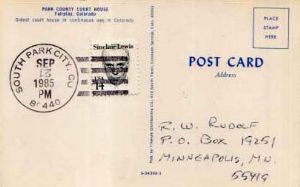 PARK COUNTY COURT HOUSE
Fairplay, Colorado
Oldest court house in continuous use in Colorado
PLACE
STAMP
HERE
SOUTH PARK CITY, CO
SEP
13
1985
PM
80440
Sinclair Lewis
14
POST CARD
Address
R. W. RUDOLF
P.O. BOX 19251
MINNEAPOLIS, MN.
55419